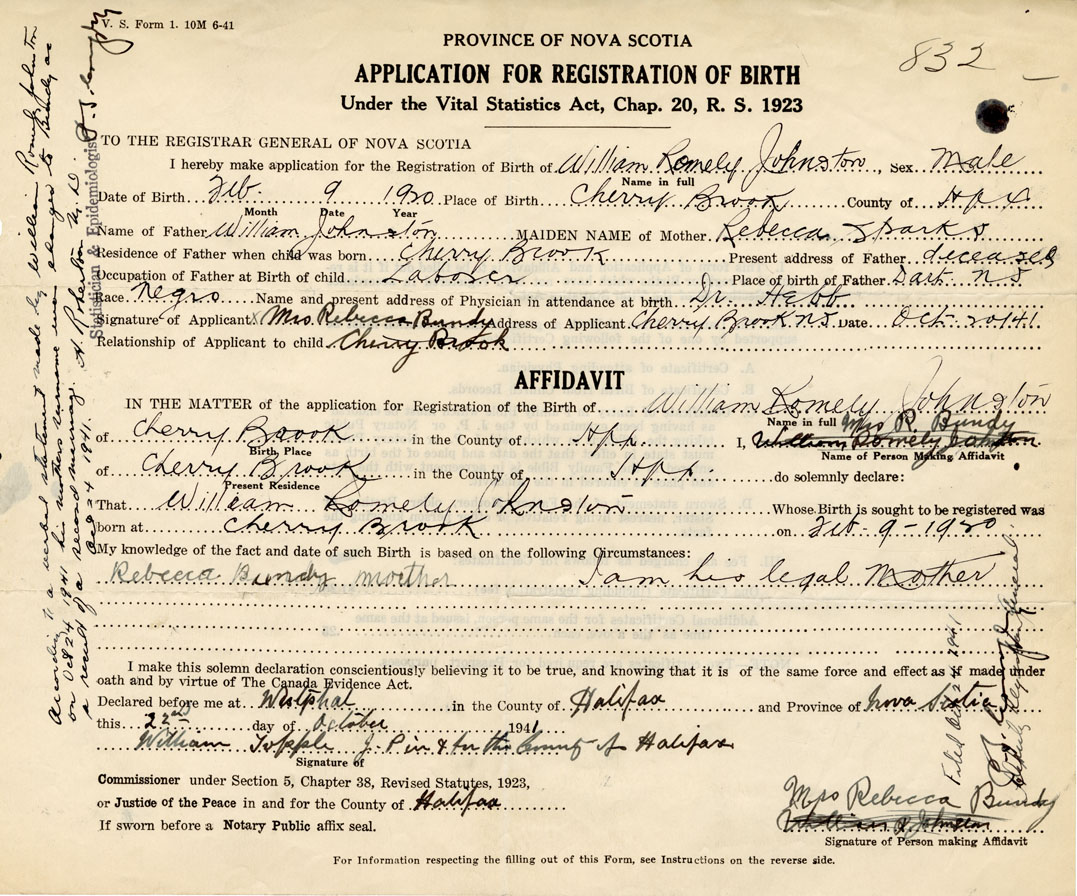 V. S. Form 1. 10M 6-41
832
PROVINCE OF NOVA SCOTIA
APPLICATION FOR REGISTRATION OF BIRTH
Under the Vital Statistics Act, Chap. 20, R. S. 1923
TO THE REGISTRAR GENERAL OF NOVA SCOTIA
I hereby make application for the Registration of Birth of William Romely Johnston, Sex Male
Name in full
Date of Birth Feb. 9 1920 Place of Birth Cherry Brook County of Hfx
Month Date Year
Name of Father William Johnston MAIDEN NAME of Mother Rebecca Sparks
Residence of Father when child was born Cherry Brook Present address of Father deceased
Occupation of Father at Birth of child Laborer Place of birth of Father Dart. N S
Race Negro Name and present address of Physician in attendance at birth Dr. Hebb
Signature of Applicant x Mrs. Rebecca Bundy Address of Applicant Cherry Brook N S Date Oct 20 / 41
Relationship of Applicant to child Cherry Brook
AFFIDAVIT
IN THE MATTER of the application for Registration of the Birth of William Romely Johnston
Name in full
of Cherry Brook in the County of Hfx. I, Mrs R. Bundy William Romely Johnston
Birth, Place
Name of Person Making Affidavit
of Cherry Brook in the County of Hfx. do solemnly declare:
Present Residence
That William Romely Johnston Whose Birth is sought to be registered was
born at Cherry Brook on Feb - 9 - 1920
My knowledge of the fact and date of such Birth is based on the following Circumstances:
Rebecca Bundy moether I am his legal Mother
I make this solemn declaration conscientiously believing it to be true, and knowing that it is of the same force and effect as if made under
oath and by virtue of The Canada Evidence Act.
Declared before me at Westphal in the County of Halifax and Province of Nova Scotia
this 22nd day of October 1941
William Topple J. P in & for the County of Halifax
Signature of
Commissioner under Section 5, Chapter 38, Revised Statutes, 1923,
or Justice of the Peace in and for the County of Halifax
If sworn before a Notary Public affix seal.
Mrs Rebecca Bundy
William R Johnston
Signature of Person making Affidavit
For Information respecting the filling out of this Form, see Instructions on the reverse side.
According to a verbal statement made by William Romely Johnston
on Oct 24 1941 his mothers surname was changed to Bundy as
a result of a second marriage.
Oct 24 1941.
Statistician & Epidemiologist
Filed Oct 24 1941
Deputy Registrar General